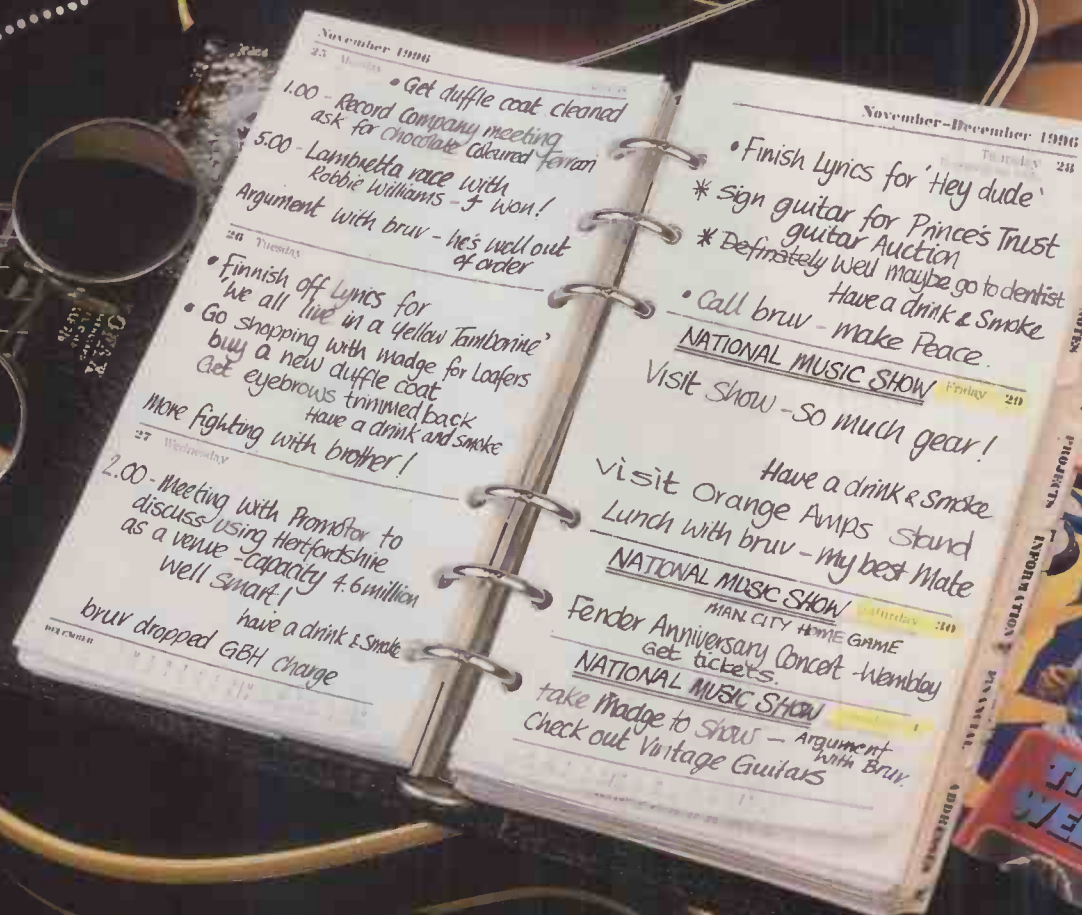 November 1996
25 Monday
• Get duffle coat cleaned
1.00 - Record Company meeting
ask for chocolate coloured ferrari
5.00 - Lambretta race with
Robbie Williams - I won!
Argument with bruv - he's well out
of order
26 Tuesday
• Finnish off Lyrics for
'we all live in a yellow Tamborine'
• Go shopping with Madge for Loafers
buy a new duffle coat
Get eyebrows trimmed back
Have a drink and smoke
More fighting with brother!
27 Wednesday
2.00 - Meeting with Promotor to
discuss using Hertfordshire
as a venue - capacity 4.6 million
well smart!
have a drink & smoke
bruv dropped GBH charge
DECEMBER
November-December 1996
Thursday 28
• Finish Lyrics for 'Hey dude'
* Sign guitar for Prince's Trust
guitar Auction
* Definately Well maybe go to dentist
Have a drink & Smoke
• Call bruv - make Peace.
NATIONAL MUSIC SHOW Friday 29
Visit Show - So much gear!
Have a drink & Smoke
visit Orange Amps stand
Lunch with bruv - my best Mate
NATIONAL MUSIC SHOW Saturday 30
MAN. CITY HOME GAME
Fender Anniversary Concert - Wembley
Get tickets.
NATIONAL MUSIC SHOW 1
take Madge to Show — Argument
with Bruv.
Check out Vintage Guitars
NOTES
PROJECTS
INFORMATION
FINANCIAL
ADDRESSES